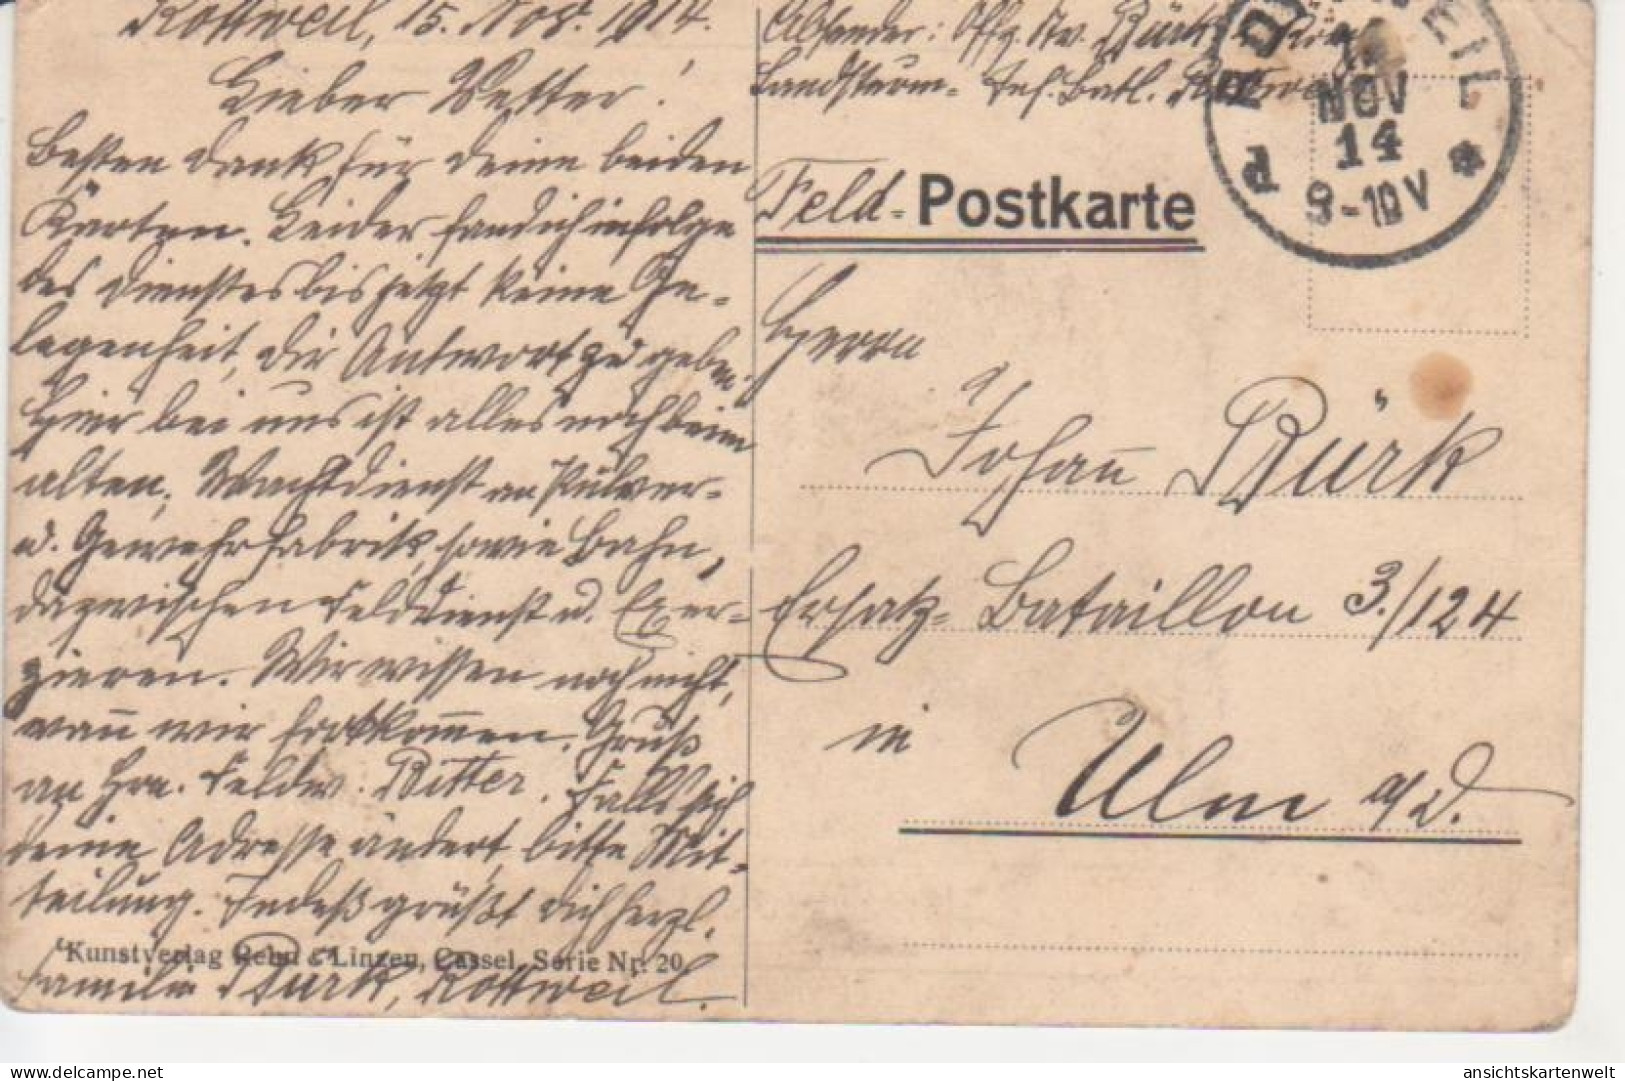 Rottweil, 15. Nov. 1914.
Lieber Vetter!
Besten Dank für deine beiden
Karten. Leider fand ich infolge
des Dienstes bis jetzt keine Ge-
legenheit, dir Antwort zu geben.
Hier bei uns ist alles noch beim
alten, Wachtdienst an Pulver-
u. Gewehrfabrik, sowie Bahn,
dazwischen Felddienst u. Exer-
zieren. Wir wissen noch nicht,
wañ wir fortkom̅en. Gruß
an Hrn. Feldw. Ritter. Falls sich
deine Adresse ändert, bitte Mit-
teilung. Indeß grüßt dich herzl.
Familie Burk, Rottweil.
Kunstverlag Rehn & Linzen, Cassel. Serie Nr. 20
Absender: Offz. Stv. Bürk
Landsturm- Inf. Batl. Rottweil
ROTTWEIL
NOV
14
9-10 V
Feld- Postkarte
Herrn
Johañ Bürk
Ersatz- Bataillon 3./124
in
Ulm a/D.
ansichtskartenwelt